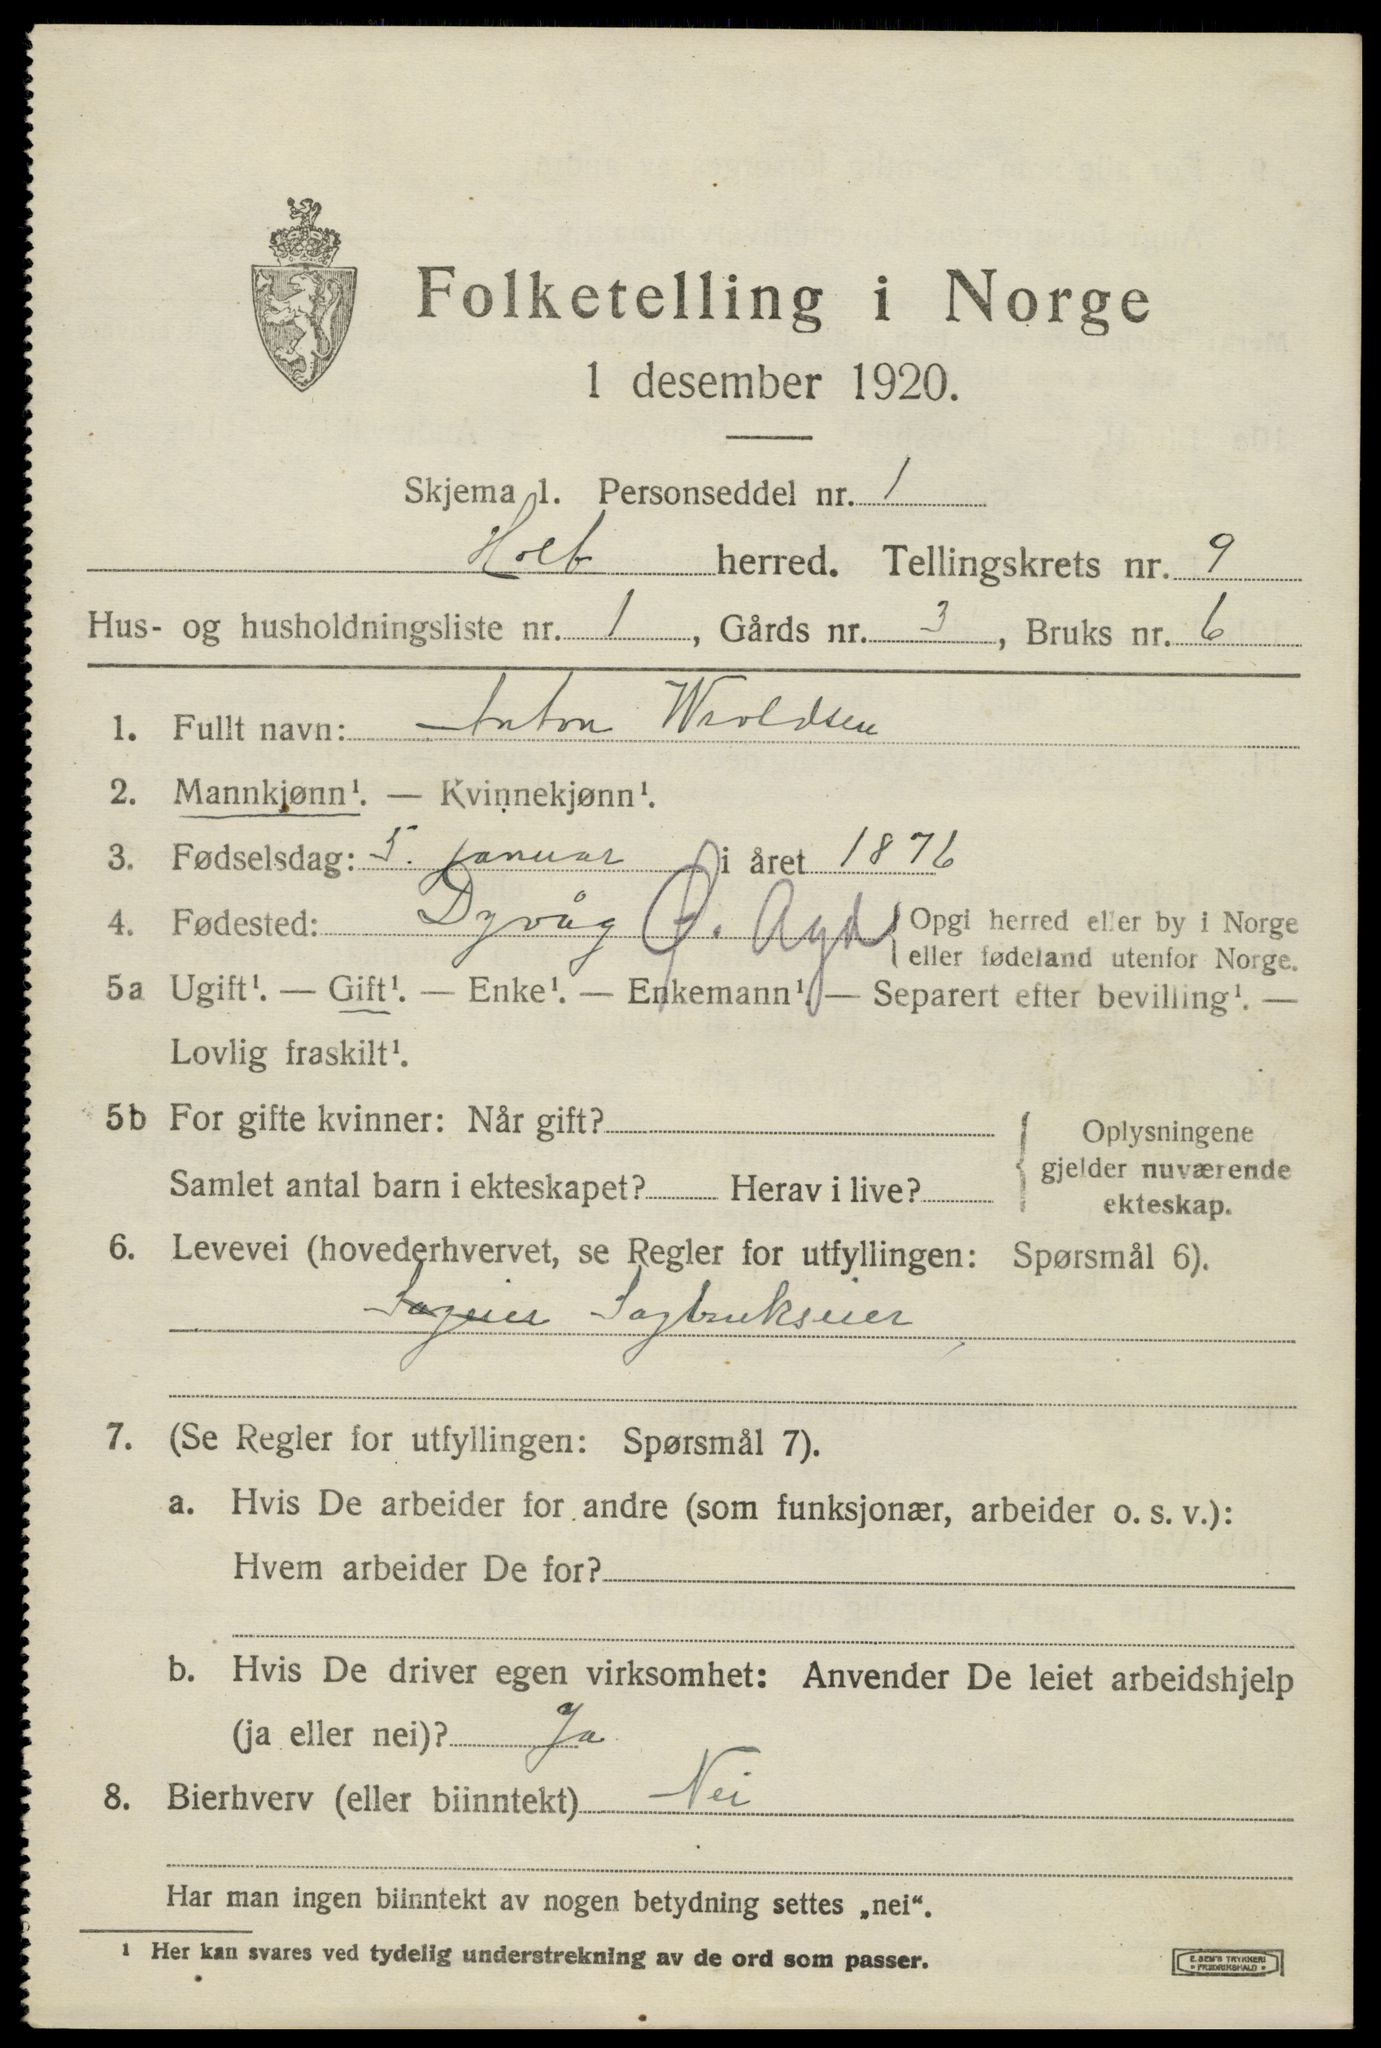 Folketelling i Norge
1 desember 1920.
Skjema 1. Personseddel nr. 1
Holt herred. Tellingskrets nr. 9
Hus- og husholdningsliste nr. 1, Gårds nr. 3, Bruks nr. 6
1. Fullt navn: Anton Wroldsen
2. Mannkjønn¹. — Kvinnekjønn¹.
3. Fødselsdag: 5. januar i året 1876
4. Fødested: Dyvåg Ø. Agd { Opgi herred eller by i Norge
eller fødeland utenfor Norge.
5a Ugift¹. — Gift¹. — Enke¹. — Enkemann¹. — Separert efter bevilling¹. —
Lovlig fraskilt¹.
5b For gifte kvinner: Når gift?
Samlet antal barn i ekteskapet? Herav i live?
{ Oplysningene
gjelder nuværende
ekteskap.
6. Levevei (hovederhvervet, se Regler for utfyllingen: Spørsmål 6).
Sageier Sagbrukseier
7. (Se Regler for utfyllingen: Spørsmål 7).
a. Hvis De arbeider for andre (som funksjonær, arbeider o. s. v.):
Hvem arbeider De for?
b. Hvis De driver egen virksomhet: Anvender De leiet arbeidshjelp
(ja eller nei)? Ja
8. Bierhverv (eller biinntekt) Nei
Har man ingen biinntekt av nogen betydning settes „nei“.
¹ Her kan svares ved tydelig understrekning av de ord som passer.
E. SEM'S TRYKKERI
• FREDRIKSHALD •